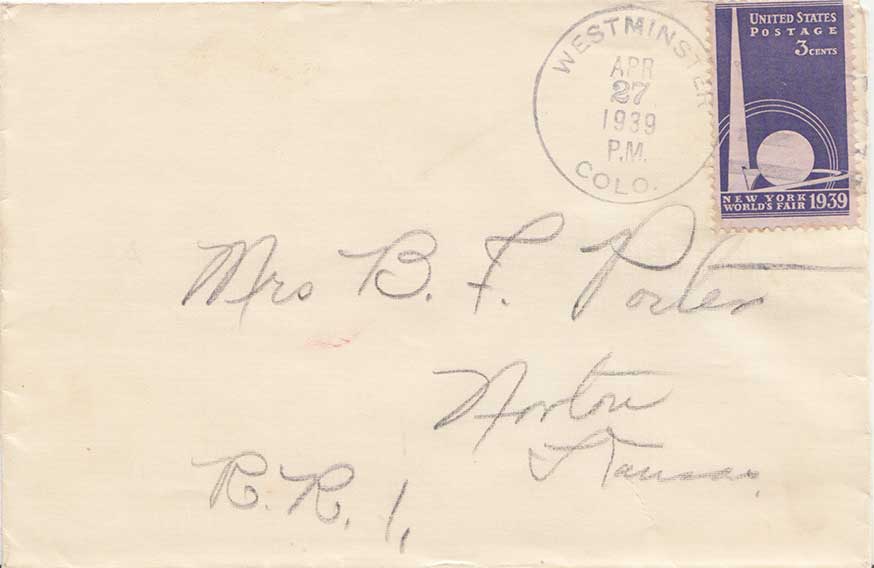 WESTMINSTER
APR
27
1939
P.M.
COLO.
UNITED STATES
POSTAGE
3 CENTS
NEW YORK
WORLD'S FAIR 1939
Mrs B. F. Porter
Norton
Kansas,
R. R. 1,